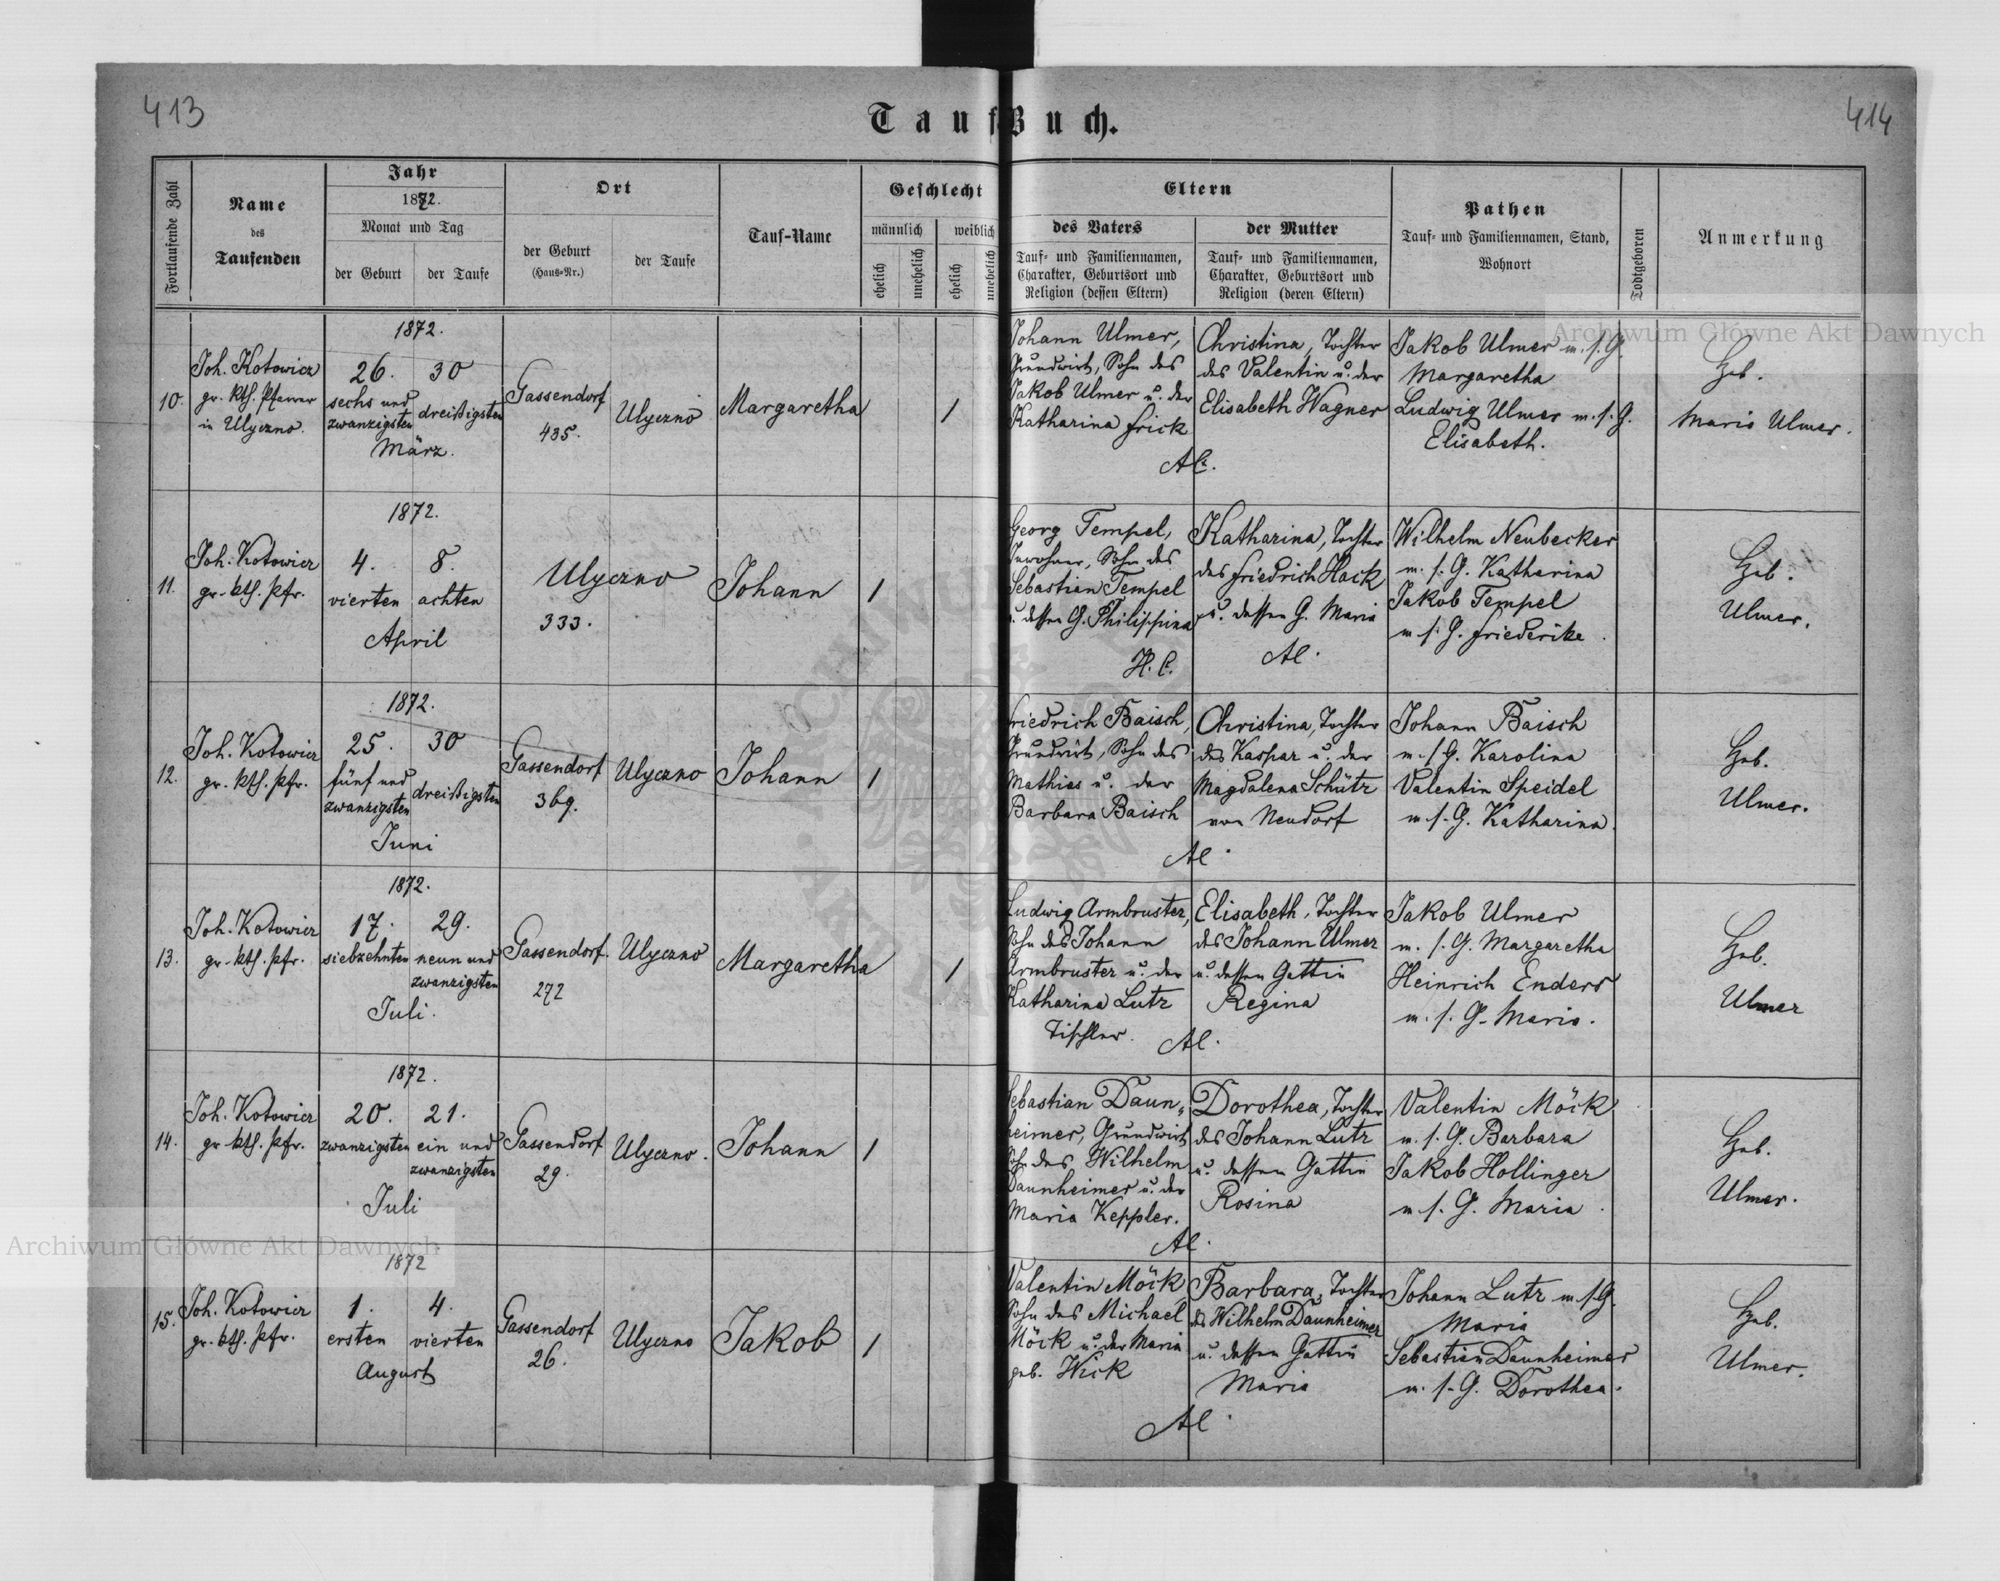 413
414
Tauf-Buch.
Fortlaufende Zahl
Name
des
Taufenden
Jahr
1872.
Monat und Tag
der Geburt
der Taufe
Ort
der Geburt
(Haus-Nr.)
der Taufe
Tauf-Name
Geschlecht
männlich
weiblich
ehelich
unehelich
ehelich
unehelich
Eltern
des Vaters
Tauf- und Familiennamen,
Charakter, Geburtsort und
Religion (dessen Eltern)
der Mutter
Tauf- und Familiennamen,
Charakter, Geburtsort und
Religion (deren Eltern)
Pathen
Tauf- und Familiennamen, Stand,
Wohnort
Todtgeboren
Anmerkung
Archiwum Główne Akt Dawnych
10.
Joh. Kotowicz
gr. kth. Pfarrer
in Ulyczno.
1872.
26. 30
sechs und
zwanzigsten
dreißigsten
März.
Gassendorf
435.
Ulyczno
Margaretha
1
Johann Ulmer,
Grundwirt, Sohn des
Jakob Ulmer u. der
Katharina Frick
Christina, Tochter
des Valentin u. der
Elisabeth Wagner
Jakob Ulmer m. s. G.
Margaretha
Ludwig Ulmer m. s. G.
Elisabeth.
Heb.
Maria Ulmer.
11.
Joh. Kotowicz
gr. kth. Pfr.
1872.
4. 8.
vierten achten
April
Ulyczno
333.
Johann
1
Georg Tempel,
Inwohner, Sohn des
Sebastian Tempel
u. dessen G. Philippina
H. C.
Katharina, Tochter
des Friedrich Hack
u. dessen G. Maria
Wilhelm Neubecker
m. s. G. Katharina
Jakob Tempel
m. s. G. Friederike.
Heb.
Ulmer.
12.
Joh. Kotowicz
gr. kth. Pfr.
1872.
25. 30
fünf und
zwanzigsten
dreißigsten
Juni
Gassendorf
369.
Ulyczno
Johann
1
Friedrich Baisch,
Grundwirt, Sohn des
Mathias u. der
Barbara Baisch
Christina, Tochter
des Kaspar u. der
Magdalena Schütz
von Neudorf
Johann Baisch
m. s. G. Karolina
Valentin Speidel
m. s. G. Katharina.
Heb.
Ulmer.
13.
Joh. Kotowicz
gr. kth. Pfr.
1872.
17. 29.
siebzehnten
neun und
zwanzigsten
Juli.
Gassendorf.
272
Ulyczno
Margaretha
1
Ludwig Armbruster,
Sohn des Johann
Armbruster u. der
Katharina Lutz
Tischler.
Elisabeth, Tochter
des Johann Ulmer
u. dessen Gattin
Regina
Jakob Ulmer
m. s. G. Margaretha
Heinrich Enders
m. s. G. Maria.
Heb.
Ulmer
14.
Joh. Kotowicz
gr. kth. Pfr.
1872.
20. 21.
zwanzigsten
ein und
zwanzigsten
Juli
Gassendorf
29.
Ulyczno.
Johann
1
Sebastian Daun-
heimer, Grundwirt
Sohn des Wilhelm
Daunheimer u. der
Maria Keppler.
Dorothea, Tochter
des Johann Lutz
u. dessen Gattin
Rosina
Valentin Möck
m. s. G. Barbara
Jakob Hollinger
m. s. G. Maria.
Heb.
Ulmer.
Archiwum Główne Akt Dawnych
15.
Joh. Kotowicz
gr. kth. Pfr.
1872
1. 4.
ersten vierten
August
Gassendorf
26.
Ulyczno
Jakob
1
Valentin Möck
Sohn des Michael
Möck u. der Maria
geb. Wick
Barbara, Tochter
des Wilhelm Daunheimer
u. dessen Gattin
Maria
Johann Lutz m. s. G.
Maria
Sebastian Daunheimer
m. s. G. Dorothea.
Heb.
Ulmer.